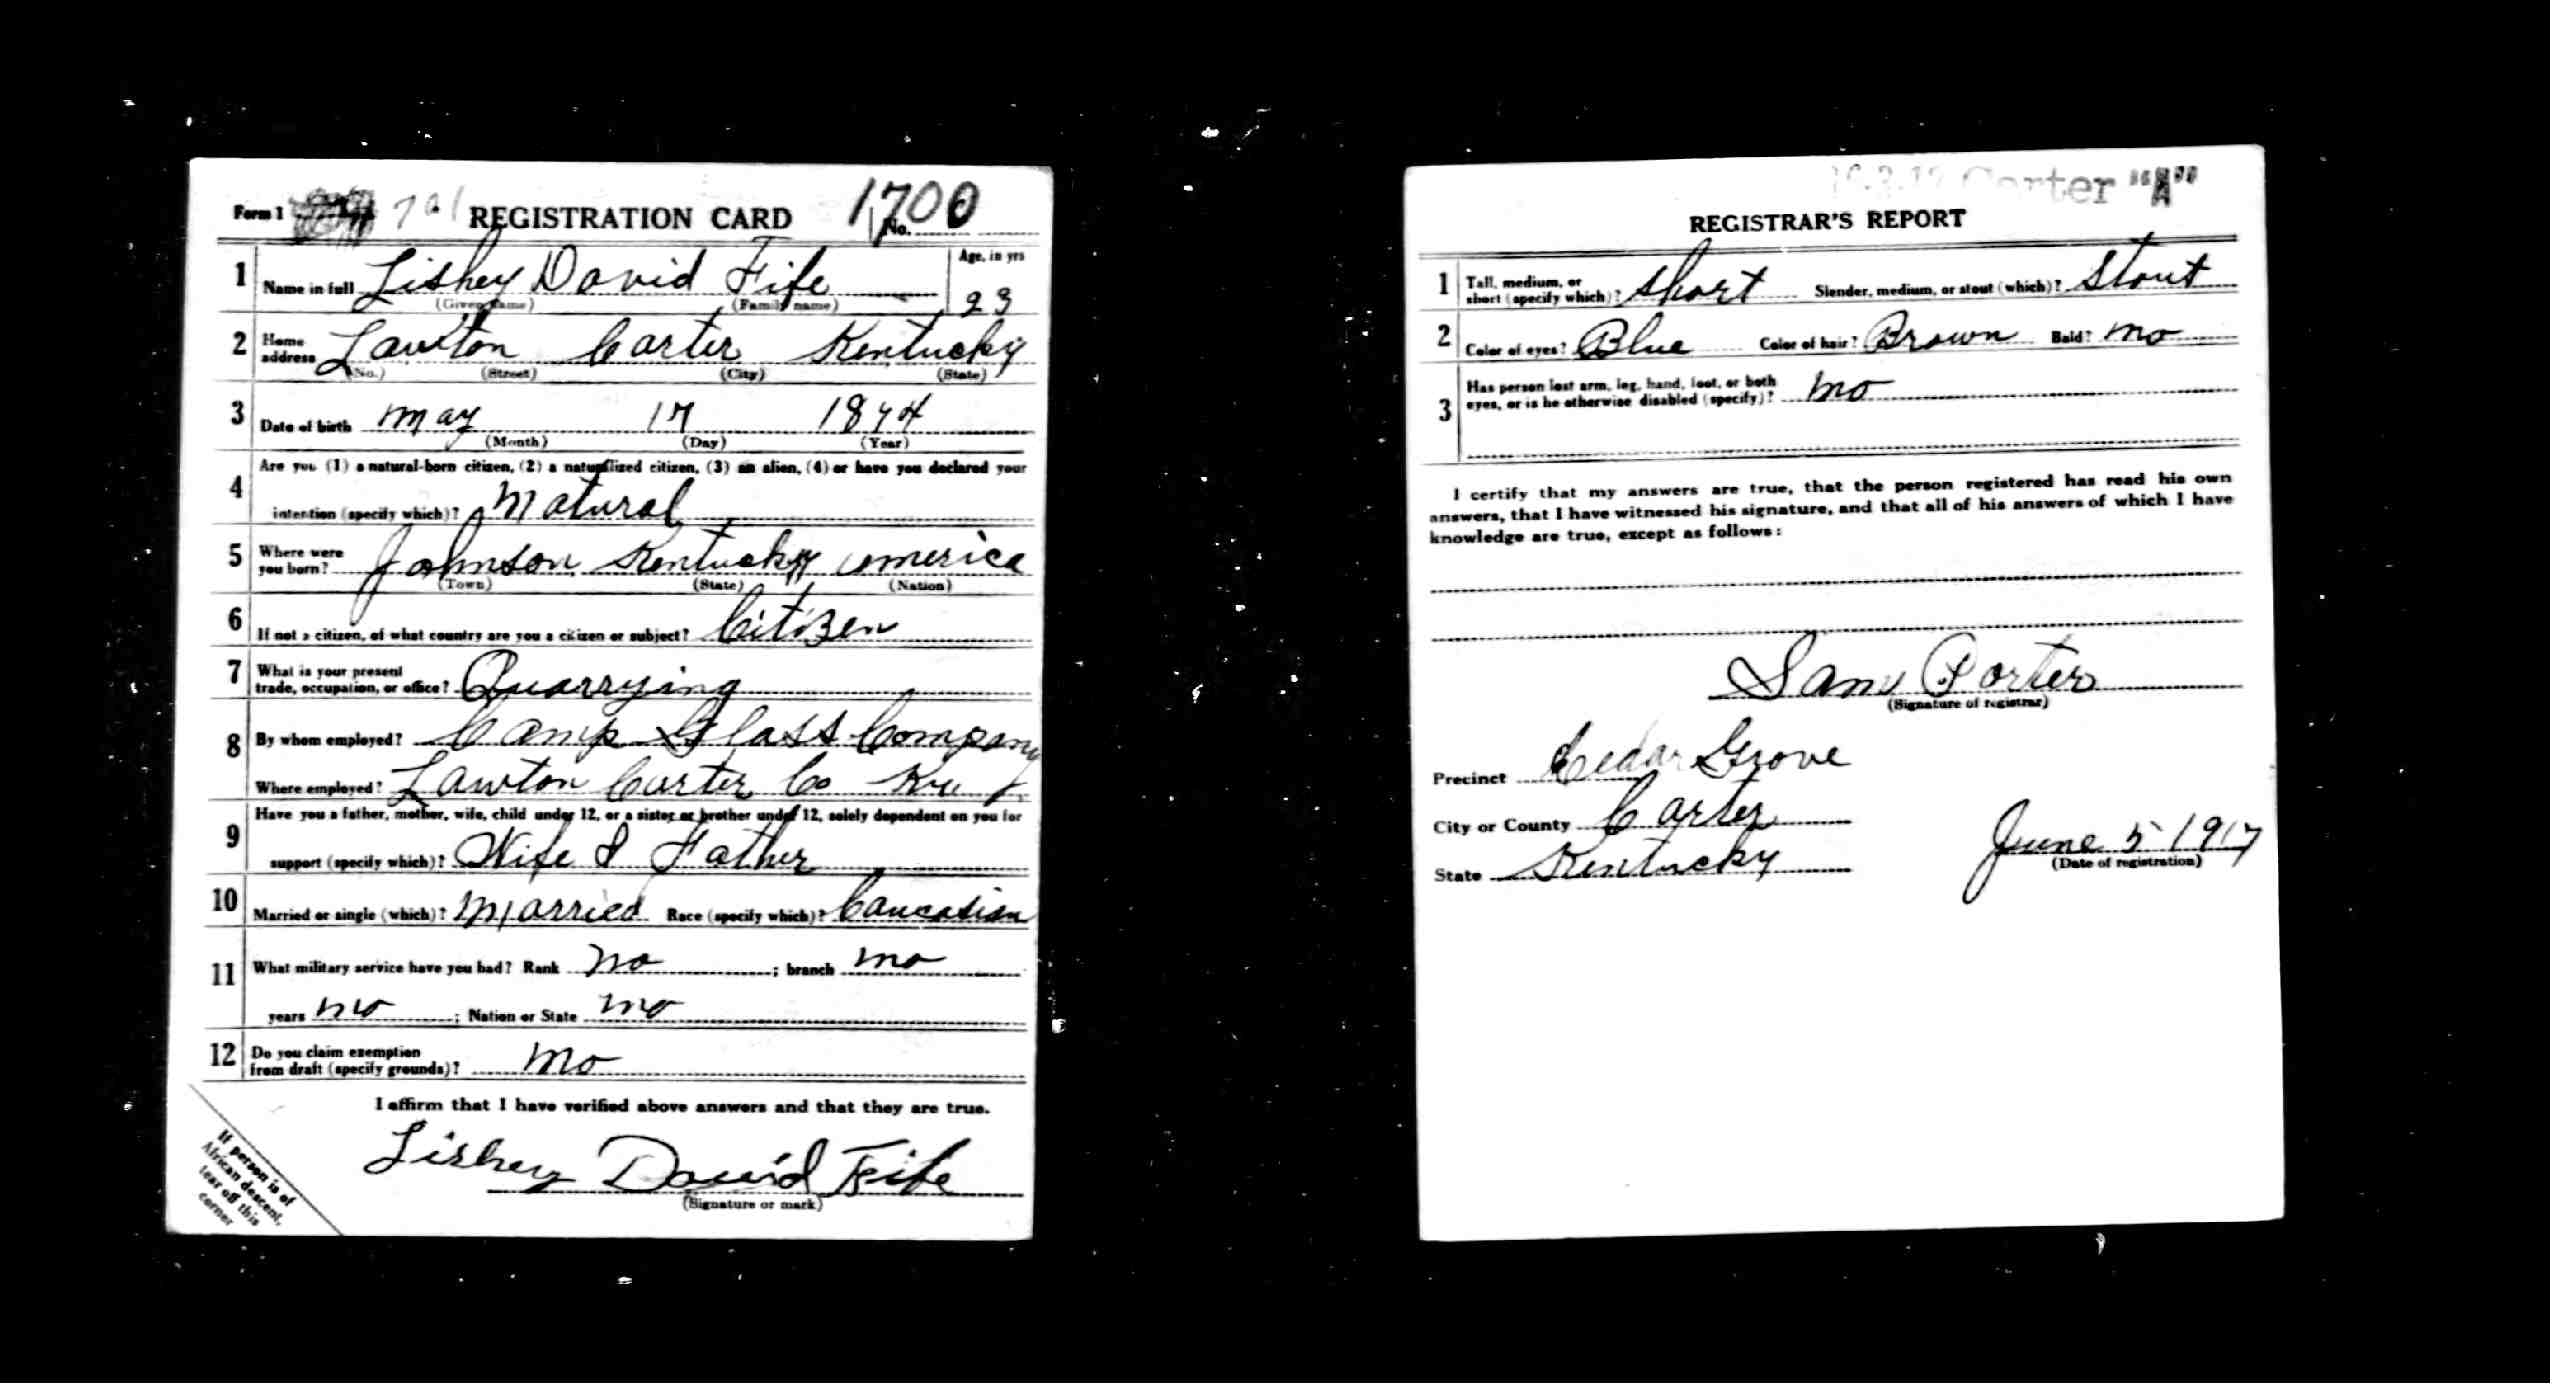 Form 1 701 REGISTRATION CARD No. 1700
1 Name in full Lishey David Fife Age, in yrs
(Given name) (Family name) 23
2 Home address Lawton Carter Kentucky
(No.) (Street) (City) (State)
3 Date of birth May 17 1894
(Month) (Day) (Year)
4 Are you (1) a natural-born citizen, (2) a naturalized citizen, (3) an alien, (4) or have you declared your
intention (specify which)? Natural
5 Where were you born? Johnson Kentucky America
(Town) (State) (Nation)
6 If not a citizen, of what country are you a citizen or subject? Citizen
7 What is your present
trade, occupation, or office? Quarrying
8 By whom employed? Camp Glass Company
Where employed? Lawton Carter Co
9 Have you a father, mother, wife, child under 12, or a sister or brother under 12, solely dependent on you for
support (specify which)? Wife & Father
10 Married or single (which)? Married Race (specify which)? Caucasian
11 What military service have you had? Rank no ; branch no
years no ; Nation or State no
12 Do you claim exemption
from draft (specify grounds)? no
I affirm that I have verified above answers and that they are true.
Lishey David Fife
(Signature or mark)
If person is of
African descent,
tear off this
corner
Carter "A"
REGISTRAR'S REPORT
1 Tall, medium, or
short (specify which)? Short Slender, medium, or stout (which)? Stout
2 Color of eyes? Blue Color of hair? Brown Bald? no
3 Has person lost arm, leg, hand, foot, or both
eyes, or is he otherwise disabled (specify)? no
I certify that my answers are true, that the person registered has read his own
answers, that I have witnessed his signature, and that all of his answers of which I have
knowledge are true, except as follows:
Sam Porter
(Signature of registrar)
Precinct Cedar Grove
City or County Carter
State Kentucky
June 5 1917
(Date of registration)